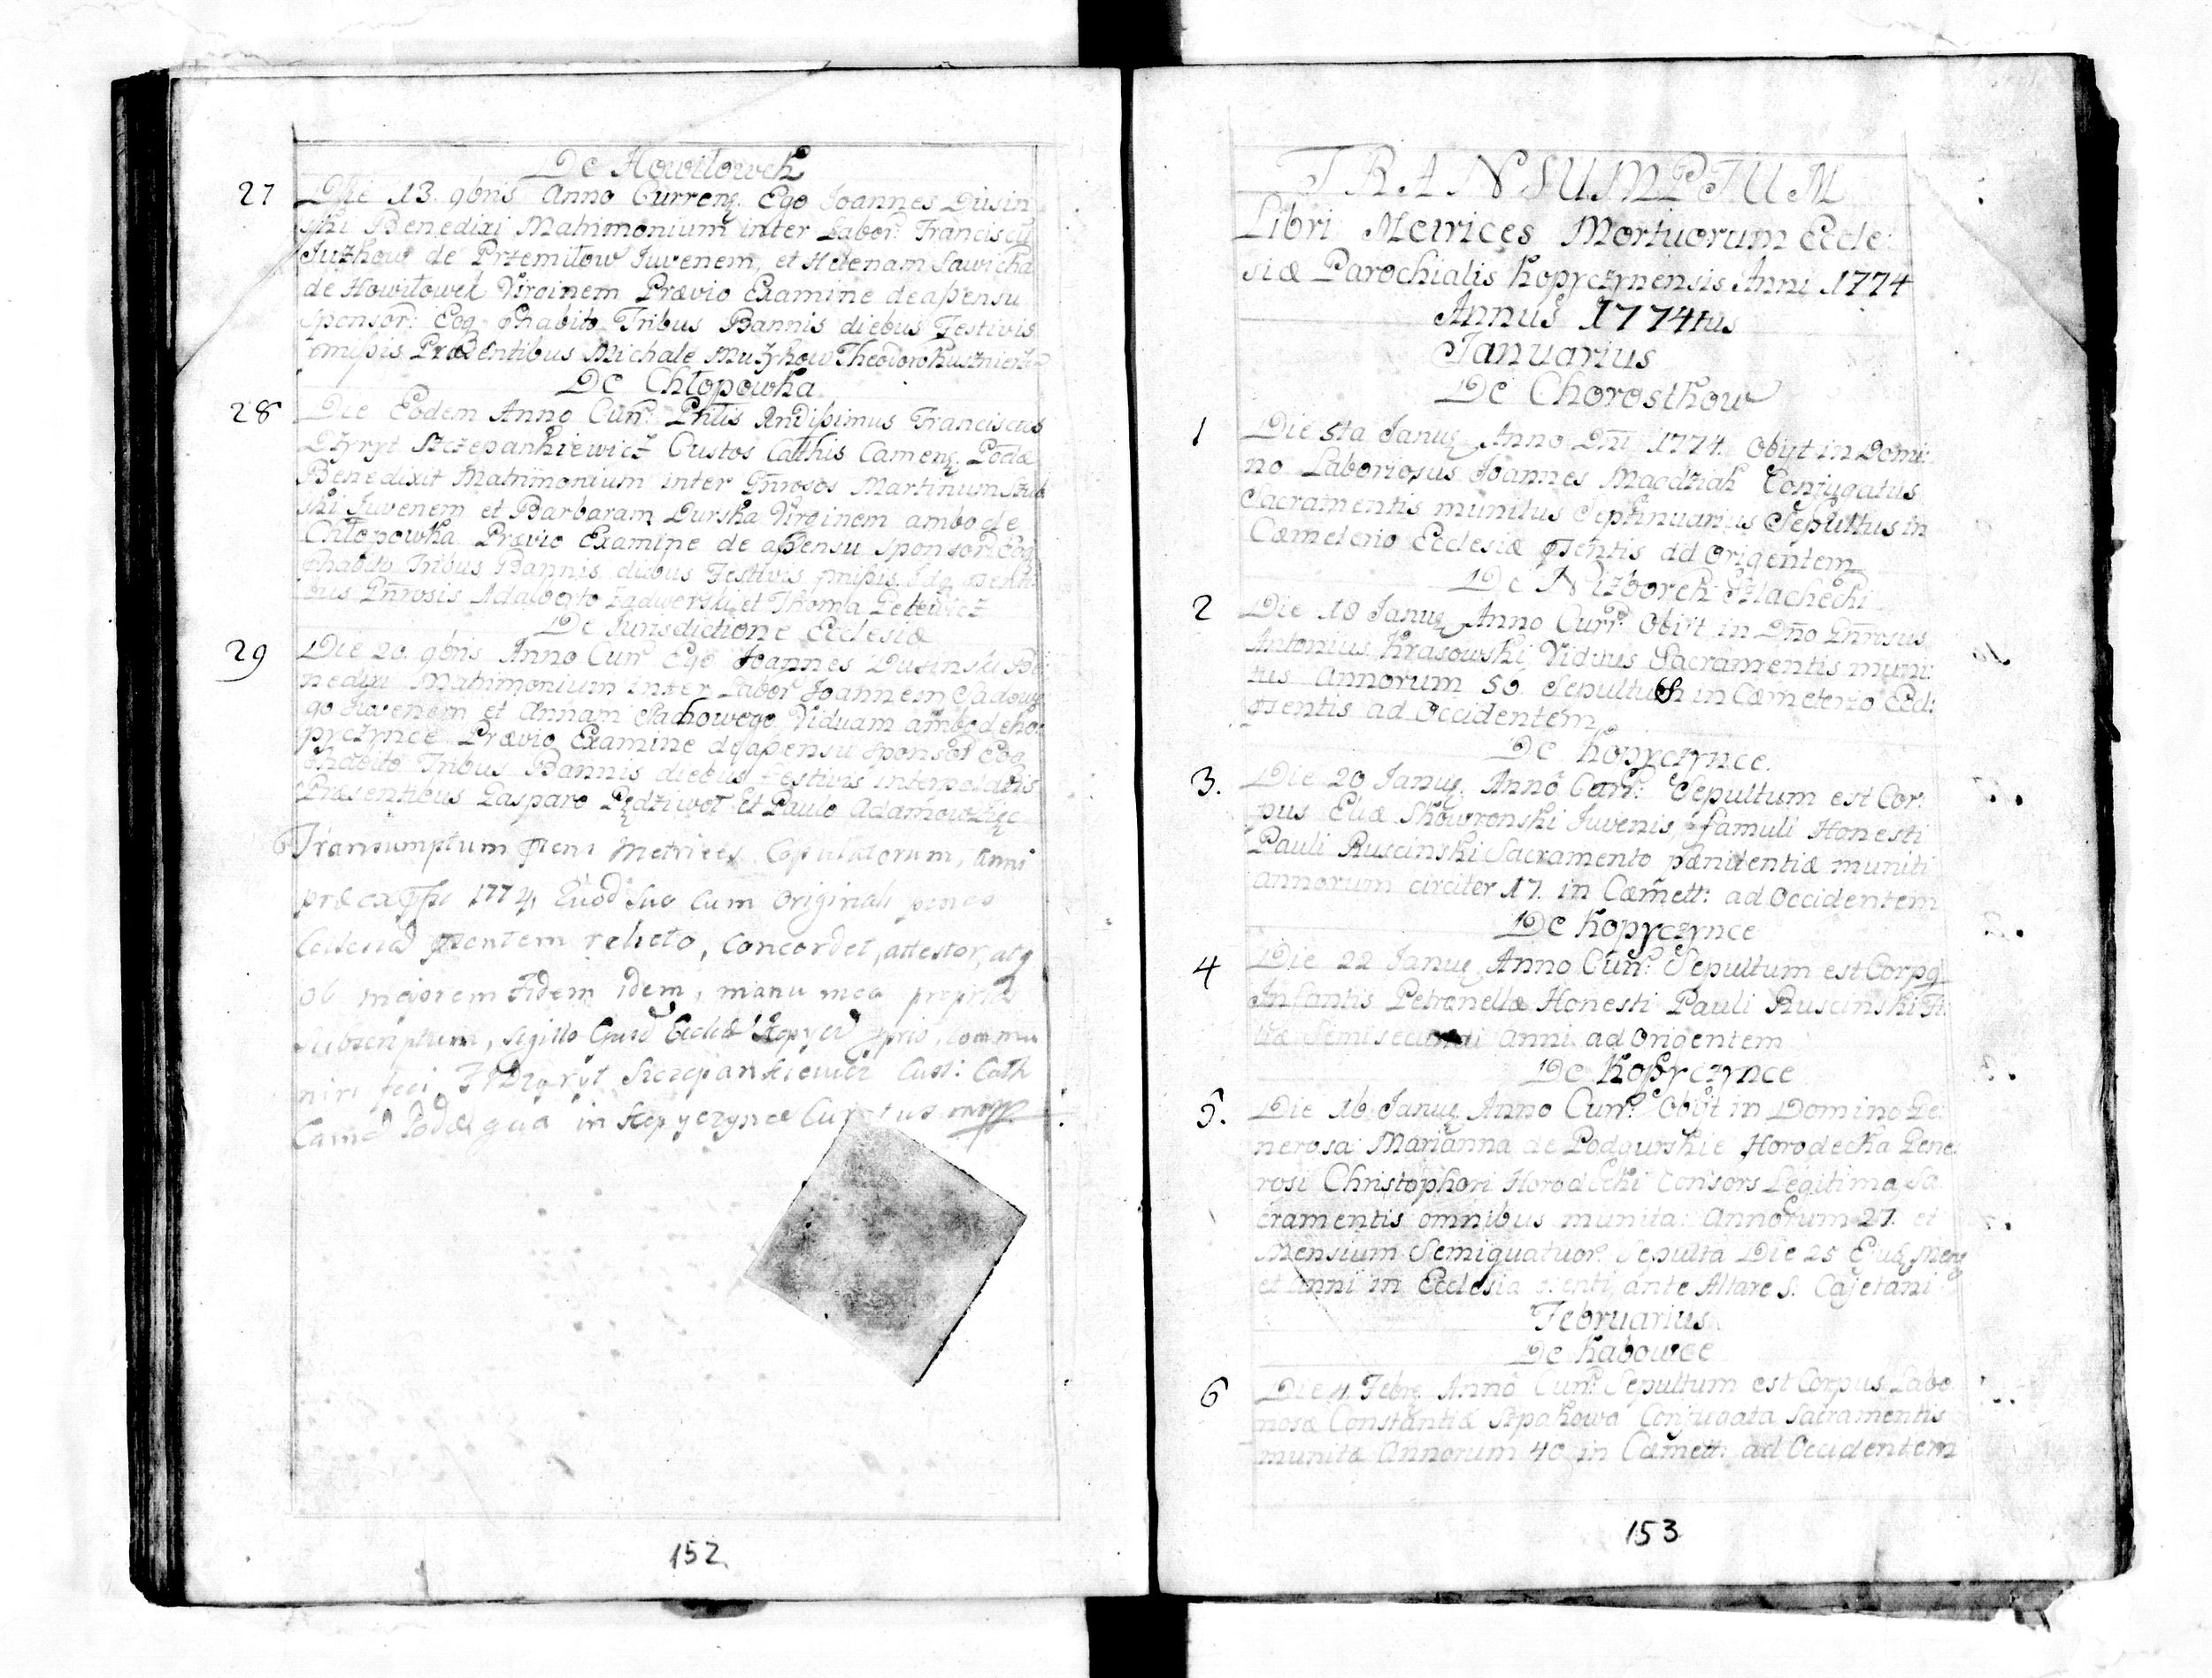 De Howiłowek
27 Die 13. 9bris Anno Curren. Ego Joannes Dusin
ski Benedixi Matrimonium inter Labor: Franciscū
Juzkow de Przemiłow Juvenem, et Helenam Sawicka
de Howiłowek Virginem Prævio Examine de aßensu
sponsor: Eoq phabito Tribus Bannis diebus Festivis
pmißis Præsentibus Michale Muzykow Theodoro
De Chłopowka
28 Die Eodem Anno Curr: Plltis Rndißimus Franciscus
Dzyryt Szczepankiewicz Custos Catthis Camen: Podæ
Benedixit Matrimonium inter Gnrosos Martinum
ski Juvenem et Barbaram Durska Virginem ambo de
Chłopowka Prævio Examine de aßensu sponsor: Eoq
phabito Tribus Bannis diebus Festivis pmißis
bus Gnrosis Adalberto Zadwerski et Thoma
De Jurisdictione Ecclesiæ
29 Die 20. 9bris Anno Curr Ego Joannes Dusinski Be
nedixi Matrimonium inter Labor Joannem Sadowy
go Juvenem et Annam Sachowego Viduam ambo de Ko:
pyczynce Prævio Examine de aßensu sponsor Eoq
phabito Tribus Bannis diebus Festivis interpolatis
Præsentibus Gasparo Pędziwot Et Paulo Adamow
Transumptum Metrices Copulatorum, Anni
1774, Quod suo cum Originali penes
relicto, concordet, attestor, atq
ob majorem Fidem idem, manu mea propria
subscriptum, sigillo commu
niri feci Dzyryt Szczepankiewicz Cust: Cath
Camel Podæ qua in Kopyczynce Curatus mpp
152
TRANSUMPTUM
Libri Metrices Mortuorum Eccle:
siæ Parochialis Kopyczynensis Anni 1774
Annus 1774tus
Januarius
De Chorostkow
1 Die 5ta Janu Anno Dni 1774. Obijt in Domi:
no Laboriosus Joannes Magdziak Conjugatus
Sacramentis munitus Septinuarius Sepultus in
Cæmeterio Ecclesiæ psentis ad Origentem
De Nizborek Szlachecki
2 Die 18 Janu Anno Curr: Obijt in Dño Gnrosus
Antonius Krasowski Viduus Sacramentis muni:
tus Annorum 50. Sepultus in Cæmeterio Eccl:
psentis ad Occidentem
De Kopyczynce.
3. Die 20 Janu. Anno Curr: Sepultum est Cor:
pus Eliæ Skowronski Juvenis, famuli Honesti
Pauli Ruscinski Sacramento pænitentiæ muniti
annorum circiter 17. in Cæmett: ad Occidentem
De Kopyczynce
4 Die 22 Janu Anno Curr: Sepultum est Corpq
Infantis Petronellæ Honesti Pauli Ruscinski Fi:
liæ Semisecundi Anni ad Origentem
De Kopyczynce
5. Die 16. Janu Anno Curr: Obijt in Domino Ge:
nerosa Marianna de Podgurskie Horodecka Gene
rosi Christophori Horodecki Consors Legitima, Sa
cramentis omnibus munita. Annorum 27. et
Mensium Semiquatuor. Sepulta Die 25 Ejus Men
et Anni in Ecclesia psenti, ante Altare S. Cajetani
Februarius
De Kabowce
6 Die 4. Febr. Anno Curr: Sepultum est Corpus Labo
riosæ Constantiæ Szpakowa Conjugata Sacramentis
munitæ Annorum 40 in Cæmett: ad Occidentem
153